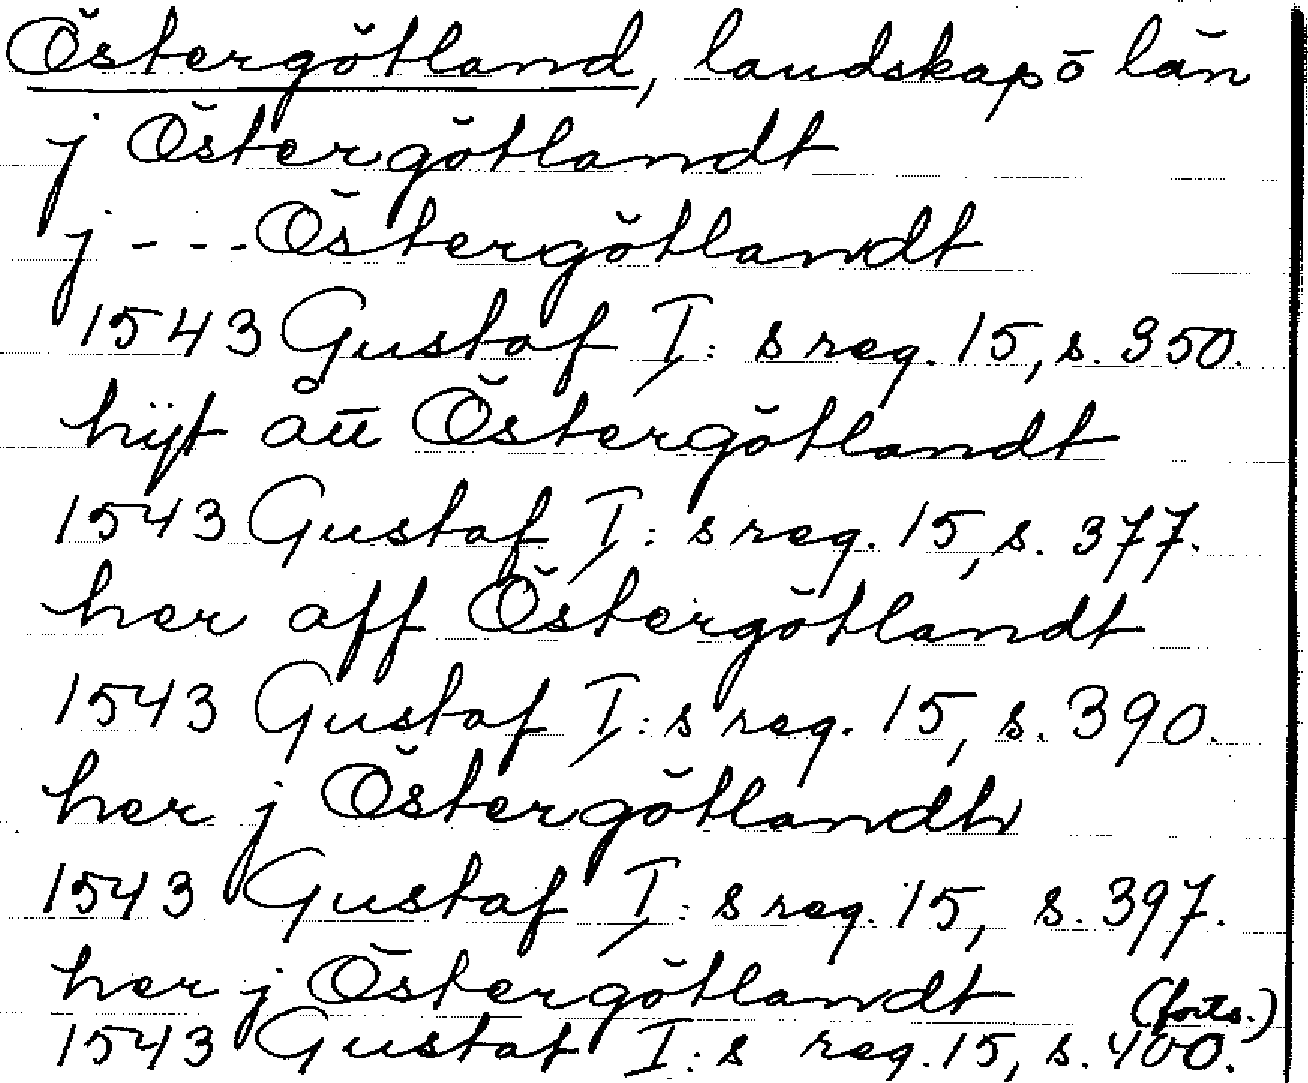 Östergötland, landskap o län
j Östergötlandt
j - - - Östergötlandt
1543 Gustaf I: s reg. 15, s. 350.
hijt åt Östergötlandt
1543 Gustaf I: s reg. 15, s. 377.
her aff Östergötlandt
1543 Gustaf I: s reg. 15, s. 390.
her j Östergötlandh
1543 Gustaf I: s reg. 15, s. 397.
her j Östergötlandt
(forts.)
1543 Gustaf I: s reg. 15, s. 400.